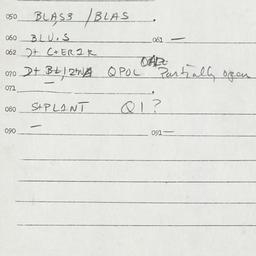 050 BLASS / BLAS .
060 BLU.S 061 —
062 I+ C+ERIR
070 D+ QPOL Partially open
072 — .
080 S+PLINT Q1?
090 — 091 —